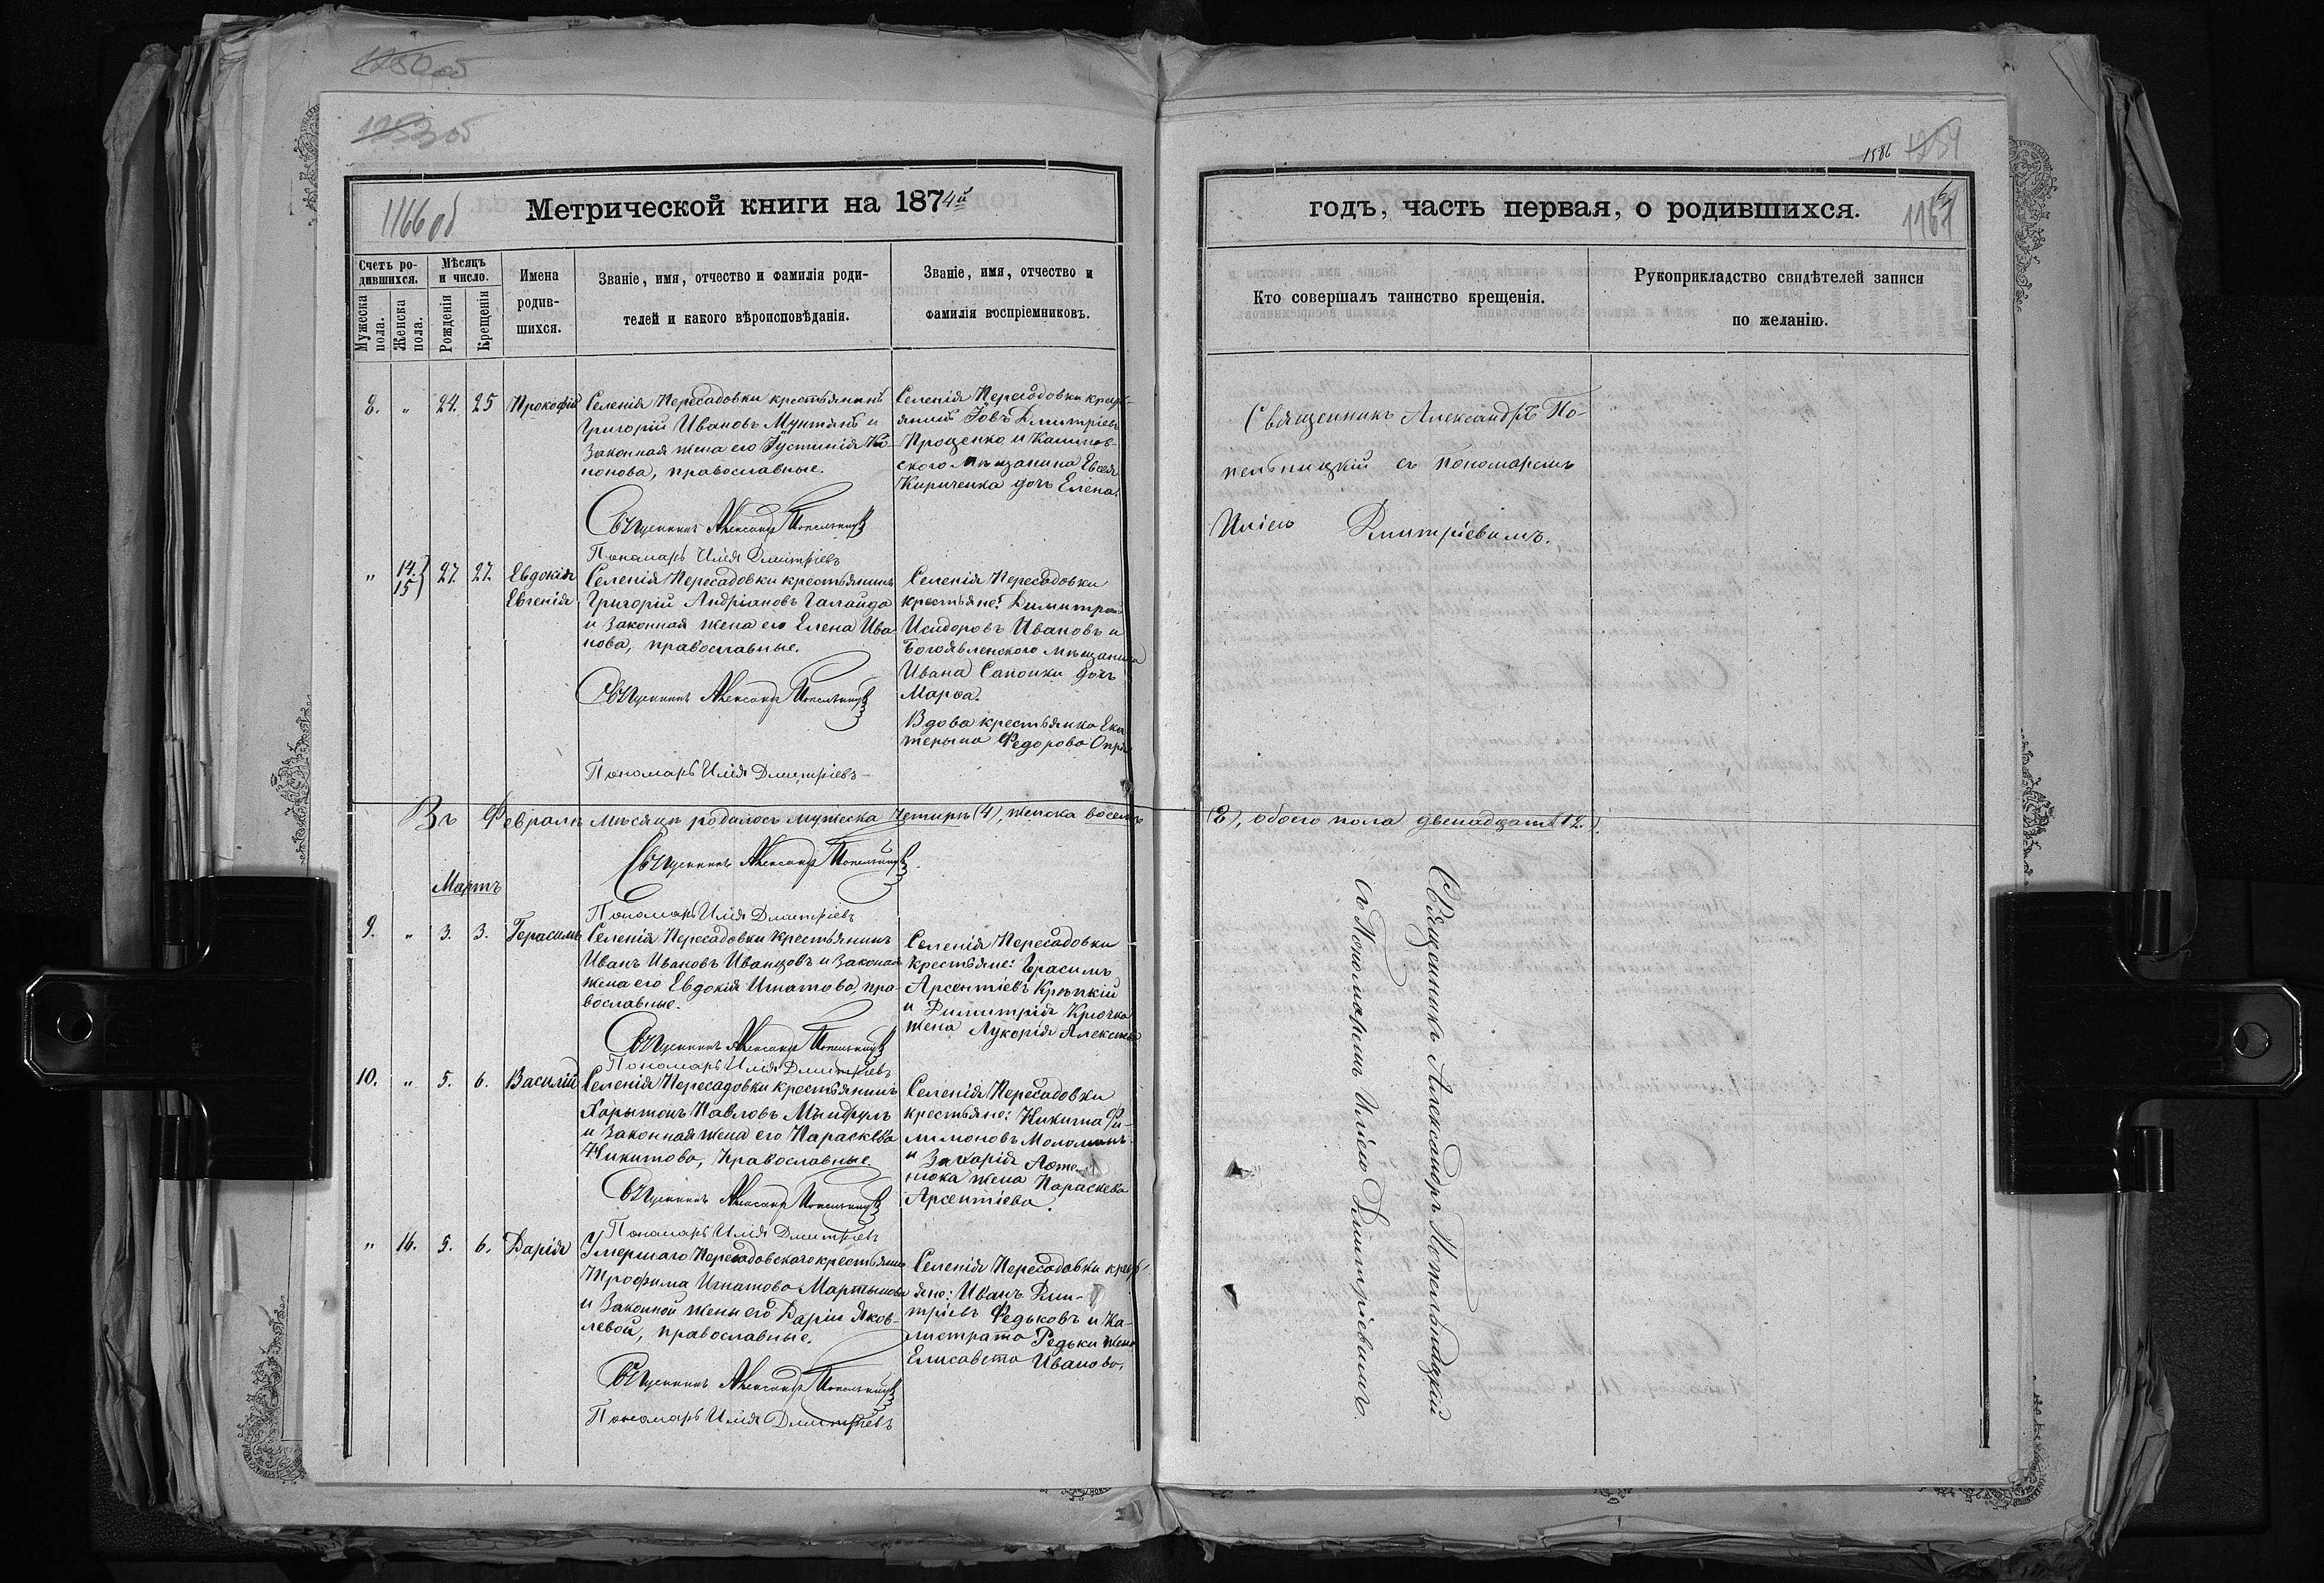 1250 об
1253 об
1166 об
Метрической книги на 1874й
Счетъ ро-
дившихся.
Мужеска
пола.
Женска
пола.
Мѣсяцъ
и число.
Рожденія
Крещенія
Имена
родив-
шихся.
Званіе, имя, отчество и фамилія роди-
телей и какого вѣроисповѣданія.
Званіе, имя, отчество и
фамилія воспріемниковъ.
8. " 24. 25 Прокофій
Селенія Пересадовки крестьянинъ
Григорій Ивановъ Мунтянъ и
Законная жена его Іустинія Ка-
нонова, православные.
Священникъ Александръ Попельницкій
Пономарь Илія Дмитріевъ
Селенія Пересадовки крест-
янинъ Іовъ Димитріевъ
Проценко и Калинов-
ского мѣщанина Евсея
Кириченка дочь Елена.
" 14. 15 27. 27. Евдокія
Евгенія
Селенія Пересадовки крестьянинъ
Григорій Андріановъ Галайда
и Законная жена его Елена Ива-
нова, православные.
Священникъ Александръ Попельницкій
Пономарь Илія Дмитріевъ
Селенія Пересадовки
крестьяне: Димитрій
Исидоровъ Ивановъ и
Богоявленского мѣщанина
Ивана Сапонки дочь
Марѳа.
Вдова крестьянка Ека-
терына Федорова
Въ Февралѣ мѣсяцѣ родилось мужеска четыри (4), женска восемь
Священникъ Александръ Попельницкій
Мартъ
Пономарь Илія Дмитріевъ
9. " 3. 3. Герасимъ
Селенія Пересадовки крестьянинъ
Иванъ Ивановъ Иванцовъ и Законая
жена его Евдокія Игнатова, пра-
вославные.
Священникъ Александръ Попельницкій
Пономарь Илія Дмитріевъ
Селенія Пересадовки
крестьяне: Герасимъ
Арсентіевъ Крѣпкій
и Димитрія Крючка
жена Лукорія Алексѣева
10. " 5. 6. Василій
Селенія Пересадовки крестьянинъ
Харытонъ Павловъ
и Законная жена его Параскева
Никитова, Православные
Священникъ Александръ Попельницкій
Пономарь Илія Дмитріевъ
Селенія Пересадовки
крестьяне: Никита Фи-
лимоновъ
и Захарія
жена Параскева
Арсентіева.
" 16. 5. 6. Дарія
Умершаго Пересадовского крестьянина
Трофима Игнатова Мартынова
и Законной жены его Даріи Яков-
левой, православные.
Священникъ Александръ Попельницкій
Пономарь Илія Дмитріевъ
Селенія Пересадовки крест-
яне: Иванъ Дми-
тріевъ Федьковъ и Ка-
листрата Редьки жена
Елисавета Иванова.
1586 1254
годъ, часть первая, о родившихся.
Кто совершалъ таинство крещенія.
Рукоприкладство свидѣтелей записи
по желанію.
Священникъ Александръ По-
пельницкій съ пономаремъ
Иліею Дмитріевимъ.
(8), обоего пола двенадцать (12.).
Священникъ Александръ Попельницкій
съ Пономаремъ Иліею Дмитріевимъ.